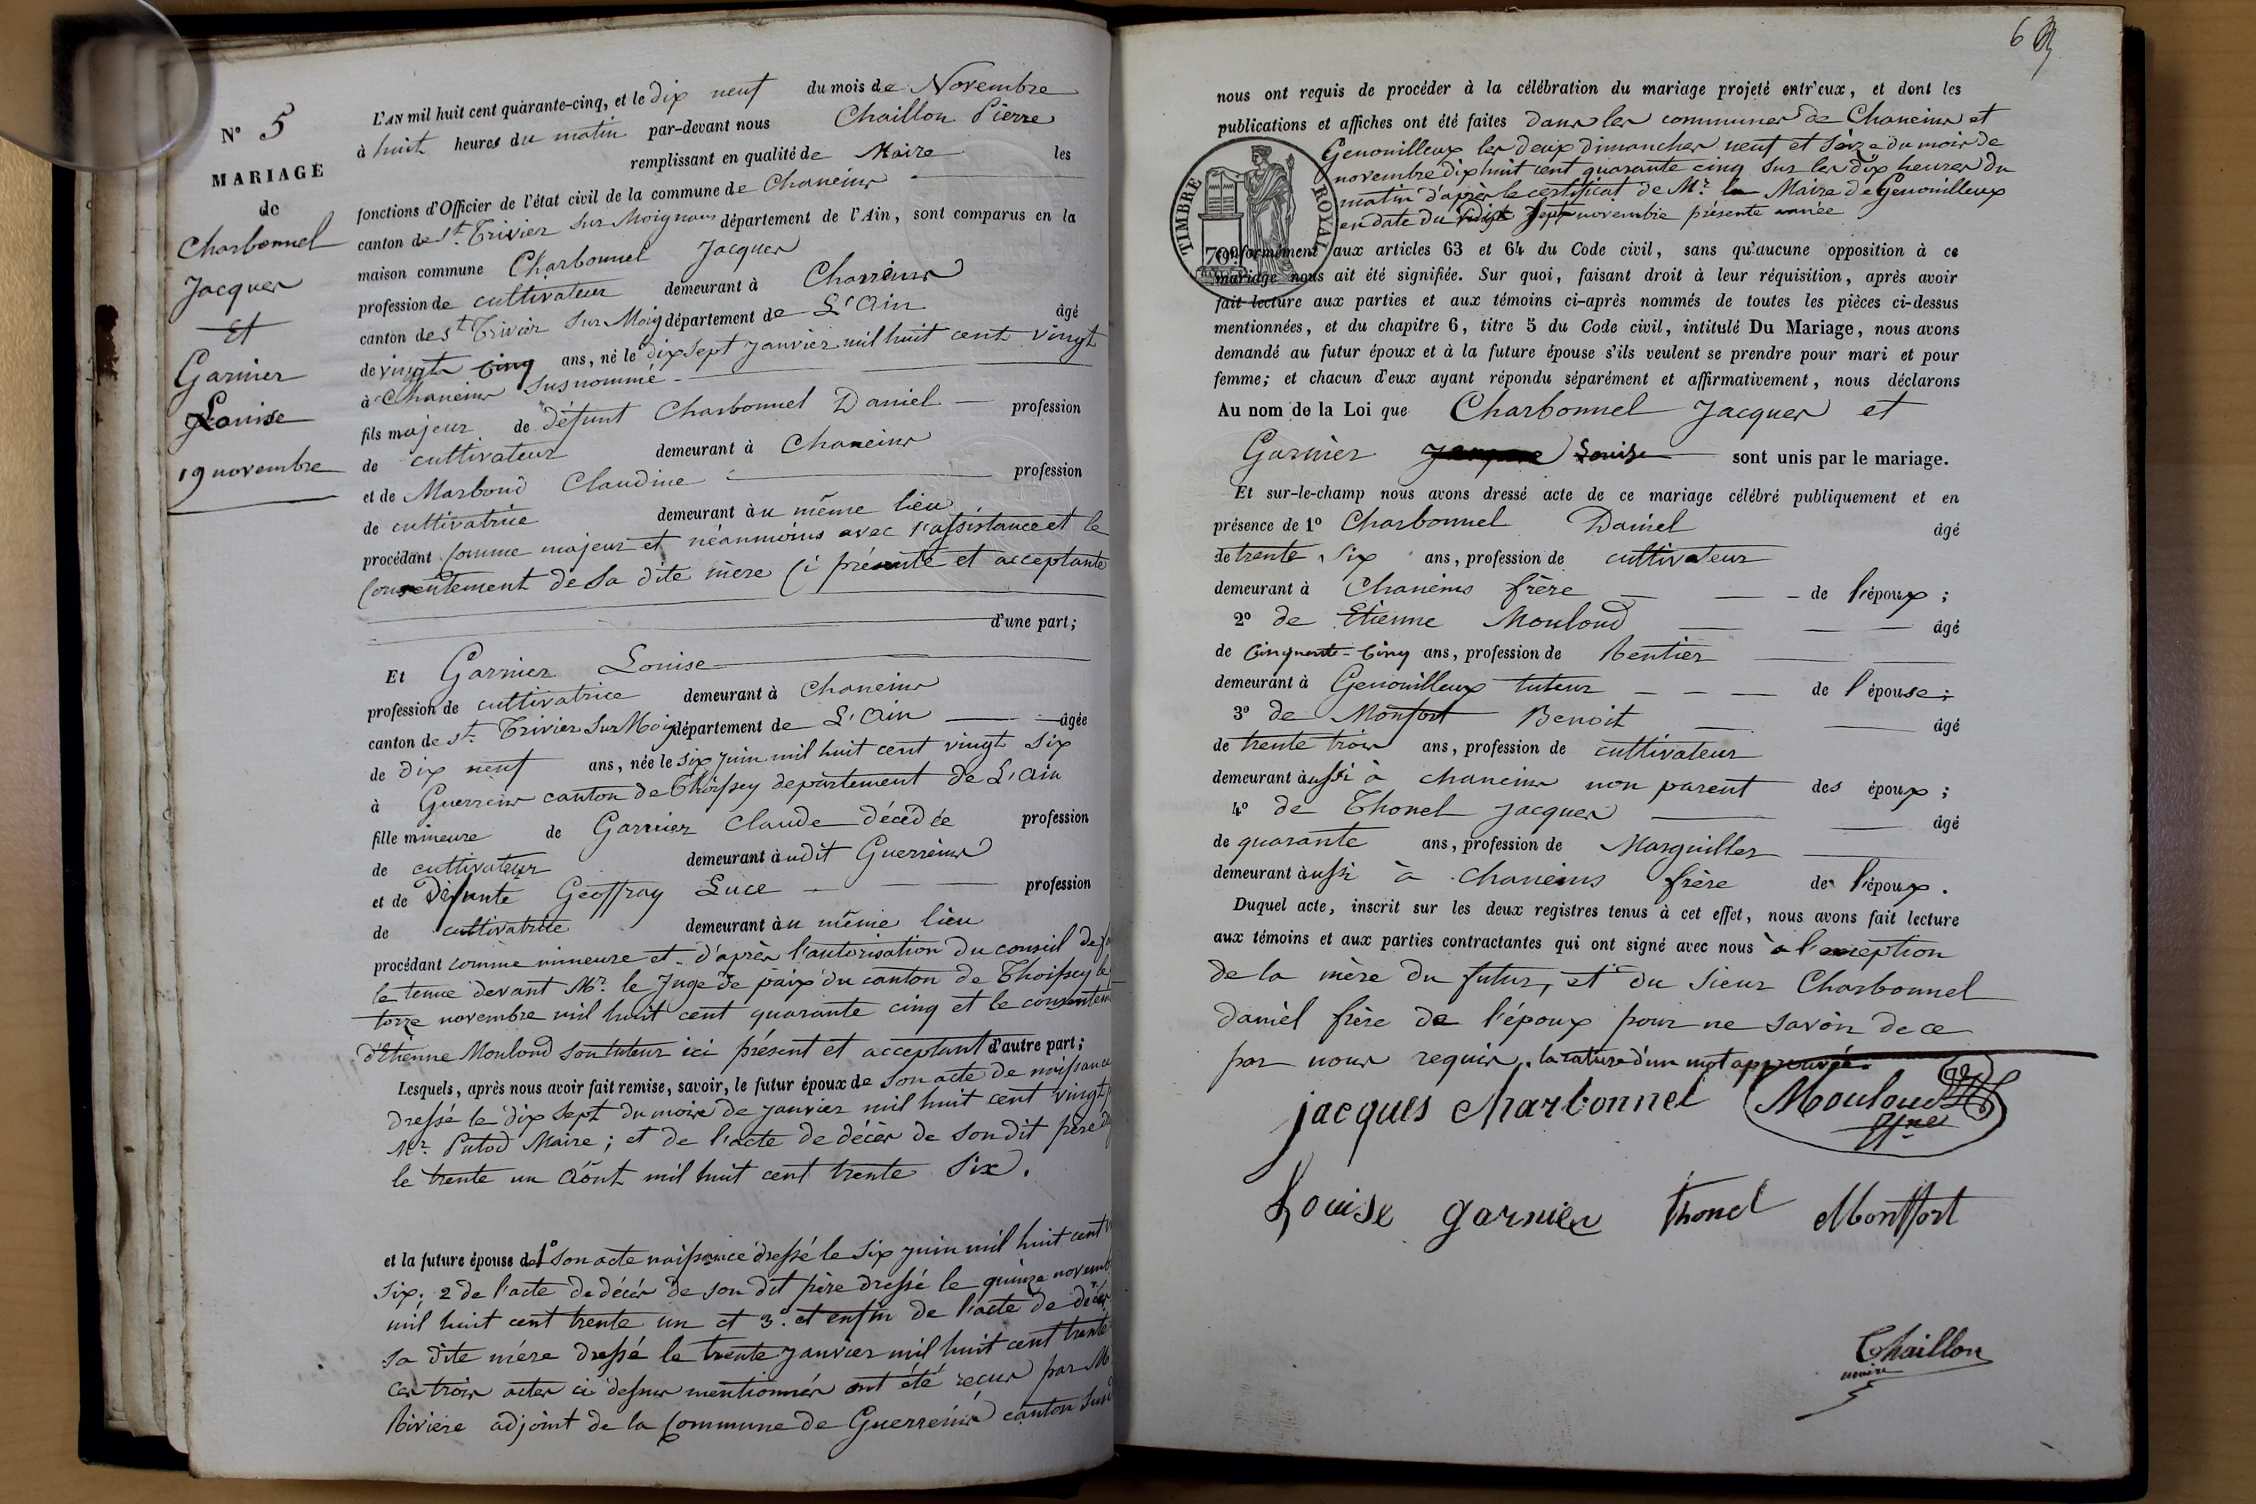 N° 5
MARIAGE
de
Charbonnel
Jacques
Et
Garnier
Louise
19 novembre
L'AN mil huit cent quarante-cinq, et le dix neuf du mois de Novembre
à huit heures du matin par-devant nous Chaillon Pierre
remplissant en qualité de Maire les
fonctions d'Officier de l'état civil de la commune de Chaneins
canton de St. Trivier sur Moignans département de l'Ain, sont comparus en la
maison commune Charbonnel Jacques
profession de cultivateur demeurant à Chaneins
canton de St Trivier sur Moig département de L'Ain âgé
de vingt cinq ans, né le dix sept janvier mil huit cent vingt
à Chaneins susnommé
fils majeur de défunt Charbonnel Daniel profession
de cultivateur demeurant à Chaneins
et de Marboud Claudine profession
de cultivatrice demeurant à u même lieu
procédant comme majeur et néanmoins avec l'assistance et le
consentement de sa dite mère ci présente et acceptante
d'une part;
Et Garnier Louise
profession de cultivatrice demeurant à Chaneins
canton de St. Trivier sur Moig département de L'Ain âgée
de dix neuf ans, née le six juin mil huit cent vingt six
à Guerreins canton de Thoissey département de L'Ain
fille mineure de Garnier Claude décédée profession
de cultivateur demeurant à udit Guerreins
et de Défunte Geoffray Luce profession
de cultivatrice demeurant à u même lieu
procédant comme mineure et d'après l'autorisation du conseil de fa
le tenue devant Mr. le Juge de paix du canton de Thoissey le
torze novembre mil huit cent quarante cinq et le consentem
d'Etienne Mouloud son tuteur ici présent et acceptant d'autre part;
Lesquels, après nous avoir fait remise, savoir, le futur époux de son acte de naissance
dressé le dix sept du mois de janvier mil huit cent vingt
Mr. Putod Maire; et de l'acte de décès de son dit père
le trente un Août mil huit cent trente six.
et la future épouse de 1° son acte naissance dressé le six juin mil huit cent
six; 2 de l'acte de décès de son dit père dressé le quinze novemb
mil huit cent trente un et 3° et enfin de l'acte de décès
sa dite mère dressé le trente janvier mil huit cent trente
ces trois actes ci dessus mentionnés ont été recus par M
Rivière adjoint de la commune de Guerreins canton susd
6
nous ont requis de procéder à la célébration du mariage projeté entr'eux, et dont les
publications et affiches ont été faites dans les communes de Chaneins et
Genouilleux les deux dimanches neuf et seize du mois de
novembre dix huit cent quarante cinq sur les dix heures du
matin d'après le certificat de Mr. le Maire de Genouilleux
en date du dix sept novembre présente année
TIMBRE ROYAL
70c.
conformément aux articles 63 et 64 du Code civil, sans qu'aucune opposition à ce
mariage nous ait été signifiée. Sur quoi, faisant droit à leur réquisition, après avoir
fait lecture aux parties et aux témoins ci-après nommés de toutes les pièces ci-dessus
mentionnées, et du chapitre 6, titre 5 du Code civil, intitulé Du Mariage, nous avons
demandé au futur époux et à la future épouse s'ils veulent se prendre pour mari et pour
femme; et chacun d'eux ayant répondu séparément et affirmativement, nous déclarons
Au nom de la Loi que Charbonnel Jacques et
Garnier Louise sont unis par le mariage.
Et sur-le-champ nous avons dressé acte de ce mariage célébré publiquement et en
présence de 1° Charbonnel Daniel âgé
de trente six ans, profession de cultivateur
demeurant à Chaneins frère de l'époux;
2° de Etienne Mouloud âgé
de cinquante-cinq ans, profession de Rentier
demeurant à Genouilleux tuteur de l'épouse;
3° de Monfort Benoit âgé
de trente trois ans, profession de cultivateur
demeurant à ussi à chaneins non parent des époux;
4° de Thonel Jacques âgé
de quarante ans, profession de Marguiller
demeurant à ussi à Chaneins frère de l'époux.
Duquel acte, inscrit sur les deux registres tenus à cet effet, nous avons fait lecture
aux témoins et aux parties contractantes qui ont signé avec nous à l'exception
de la mère du futur, et du sieur Charbonnel
daniel frère de l'époux pour ne savoir de ce
par nous requis. la rature d'un mot approuvée.
jacques charbonnel Mouloud
Louise garnier Thonel Montfort
Chaillon
maire